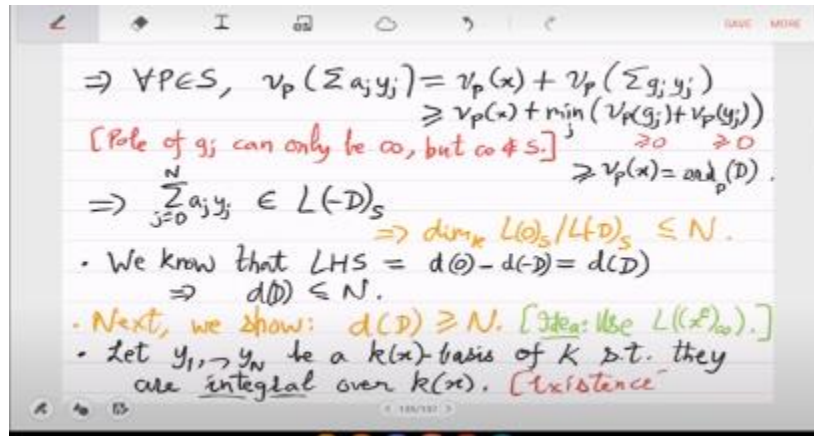 SAVE MORE
⇒ ∀P∈S, v_P(Σ a_j y_j) = v_P(x) + v_P(Σ g_j y_j)
≥ v_P(x) + min_j (v_P(g_j) + v_P(y_j))
[Pole of g_j can only be ∞, but ∞ ∉ S.] ≥0 ≥0
≥ v_P(x) = ord_P(D).
⇒ Σ_{j=0}^{N} a_j y_j ∈ L(-D)_S
⇒ dim_k L(0)_S / L(-D)_S ≤ N.
• We know that LHS = d(0) - d(-D) = d(D)
⇒ d(D) ≤ N.
• Next, we show: d(D) ≥ N. [Idea: Use L((x^ℓ)_∞).]
• Let y_1,..,y_N be a k(x)-basis of K s.t. they
are integral over k(x). [Existence